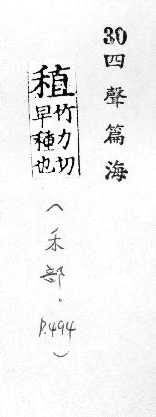 30四聲篇海
稙竹力切
早種也
(禾部.
P.494)